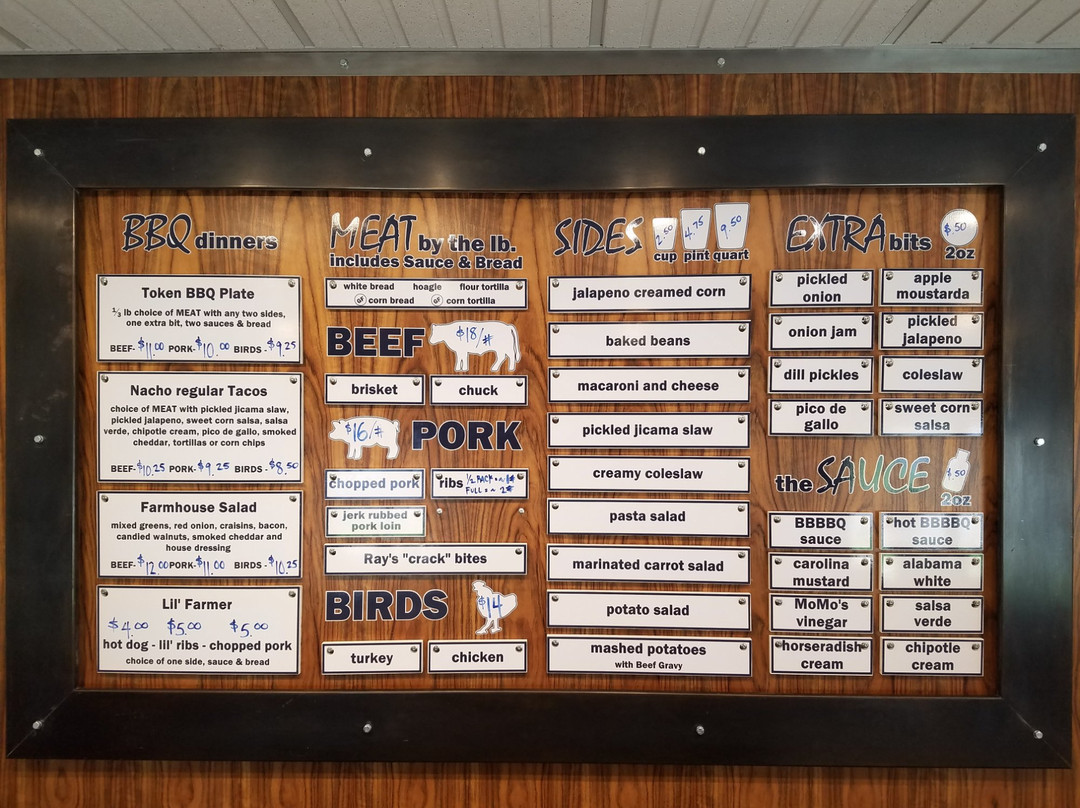 BBQ dinners
Token BBQ Plate
1/3 lb choice of MEAT with any two sides,
one extra bit, two sauces & bread
BEEF- $11.00 PORK- $10.00 BIRDS - $9.25
Nacho regular Tacos
choice of MEAT with pickled jicama slaw,
pickled jalapeno, sweet corn salsa, salsa
verde, chipotle cream, pico de gallo, smoked
cheddar, tortillas or corn chips
BEEF- $10.25 PORK- $9.25 BIRDS - $8.50
Farmhouse Salad
mixed greens, red onion, craisins, bacon,
candied walnuts, smoked cheddar and
house dressing
BEEF- $12.00 PORK- $11.00 BIRDS - $10.25
Lil' Farmer
$4.00 $5.00 $5.00
hot dog - lil' ribs - chopped pork
choice of one side, sauce & bread
MEAT by the lb.
includes Sauce & Bread
white bread hoagie flour tortilla
GF corn bread GF corn tortilla
BEEF $18/#
brisket
chuck
$16/# PORK
chopped pork
ribs 1/2 RACK = ~ 1#
FULL = ~ 2#
jerk rubbed
pork loin
Ray's "crack" bites
BIRDS $14
turkey
chicken
SIDES 2.50 4.75 9.50
cup pint quart
jalapeno creamed corn
baked beans
macaroni and cheese
pickled jicama slaw
creamy coleslaw
pasta salad
marinated carrot salad
potato salad
mashed potatoes
with Beef Gravy
EXTRA bits $.50
2oz
pickled
onion
apple
moustarda
onion jam
pickled
jalapeno
dill pickles
coleslaw
pico de
gallo
sweet corn
salsa
the SAUCE $.50
2oz
BBBBQ
sauce
hot BBBBQ
sauce
carolina
mustard
alabama
white
MoMo's
vinegar
salsa
verde
horseradish
cream
chipotle
cream